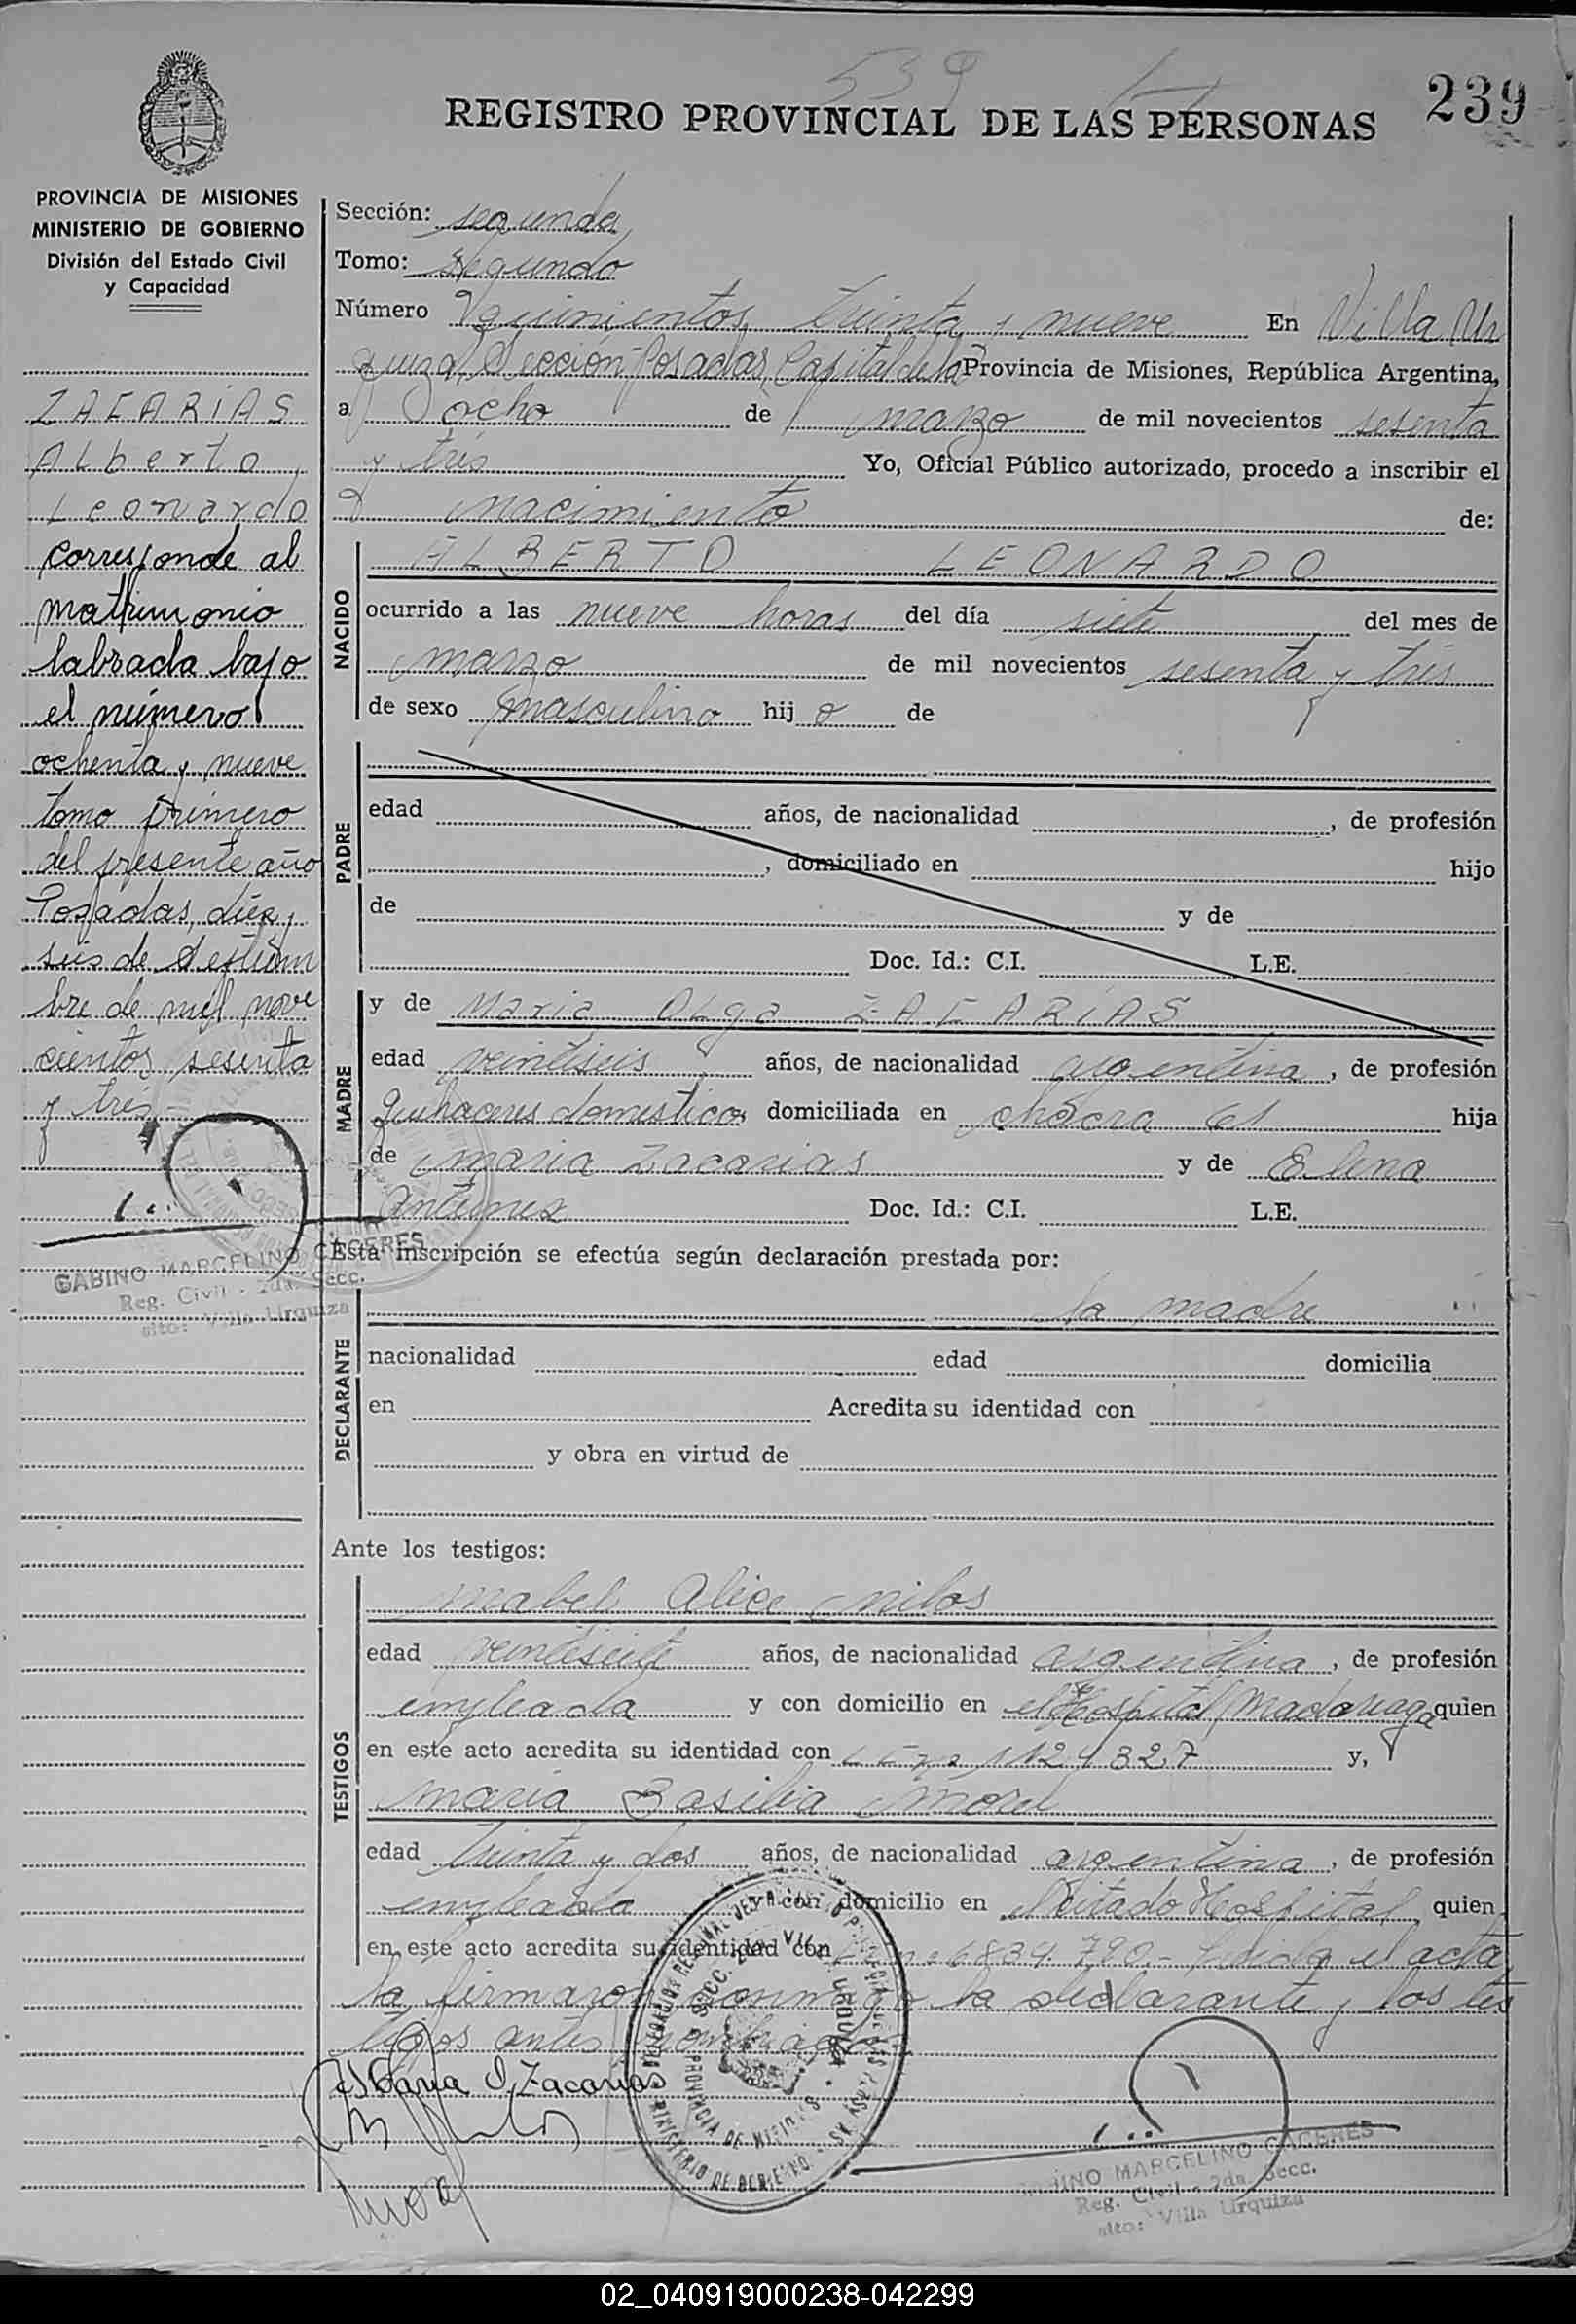 539
239
REGISTRO PROVINCIAL DE LAS PERSONAS
PROVINCIA DE MISIONES
MINISTERIO DE GOBIERNO
División del Estado Civil
y Capacidad
ZACARIAS
Alberto
Leonardo
corresponde al
matrimonio
labrada bajo
el número
ochenta y nueve
tomo primero
del presente año
Posadas, diez y
seis de Septiem
bre de mil nove
cientos sesenta
y tres.-
GABINO MARCELINO CACERES
Reg. Civil - 2da. Secc.
Villa Urquiza
Sección: segunda
Tomo: segundo
Número quinientos treinta y nueve En Villa Ur
quiza, Sección Posadas, Capital de la Provincia de Misiones, República Argentina,
a ocho de marzo de mil novecientos sesenta
y tres Yo, Oficial Público autorizado, procedo a inscribir el
nacimiento de:
NACIDO
ALBERTO LEONARDO
ocurrido a las nueve horas del día siete del mes de
marzo de mil novecientos sesenta y tres
de sexo masculino hijo de
PADRE
edad años, de nacionalidad , de profesión
, domiciliado en hijo
de y de
Doc. Id.: C.I. L.E.
MADRE
y de Maria Olga ZACARIAS
edad veintiseis años, de nacionalidad argentina, de profesión
quehaceres domesticos domiciliada en chacra 61 hija
de maria Zacarias y de Elena
Antunez Doc. Id.: C.I. L.E.
Esta inscripción se efectúa según declaración prestada por:
DECLARANTE
la madre
nacionalidad edad domicilia
en Acredita su identidad con
y obra en virtud de
Ante los testigos:
TESTIGOS
Mabel Alice Milos
edad veintisiete años, de nacionalidad argentina, de profesión
empleada y con domicilio en el Hospital Madariaga quien
en este acto acredita su identidad con y,
maria Basilia Morel
edad treinta y dos años, de nacionalidad argentina, de profesión
empleada y con domicilio en el citado Hospital, quien
en este acto acredita su identidad con 6834.790.- leida el acta
la firmaron conmigo la declarante y los tes
tigos antes nombrados
Maria O. Zacarias
Morel
PROVINCIA DE MISIONES
MINISTERIO DE GOBIERNO
GABINO MARCELINO CACERES
Reg. Civil - 2da. Secc.
Villa Urquiza
02_040919000238-042299